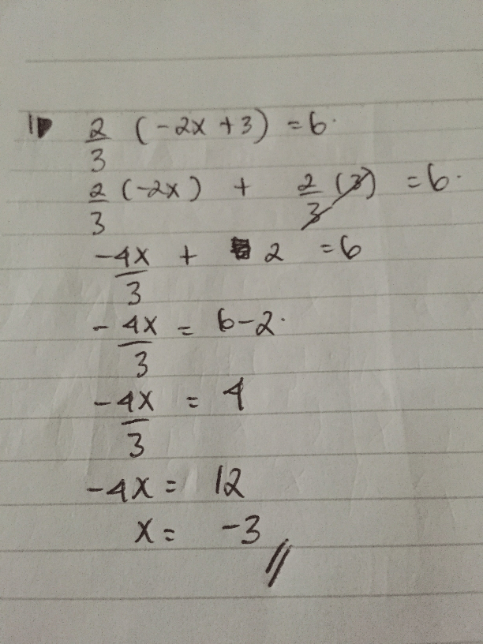 1) 2/3 (-2x + 3) = 6.
2/3 (-2x) + 2/3 (3) = 6.
-4x/3 + 2 = 6
-4x/3 = 6-2.
-4x/3 = 4
-4x = 12
x = -3 //